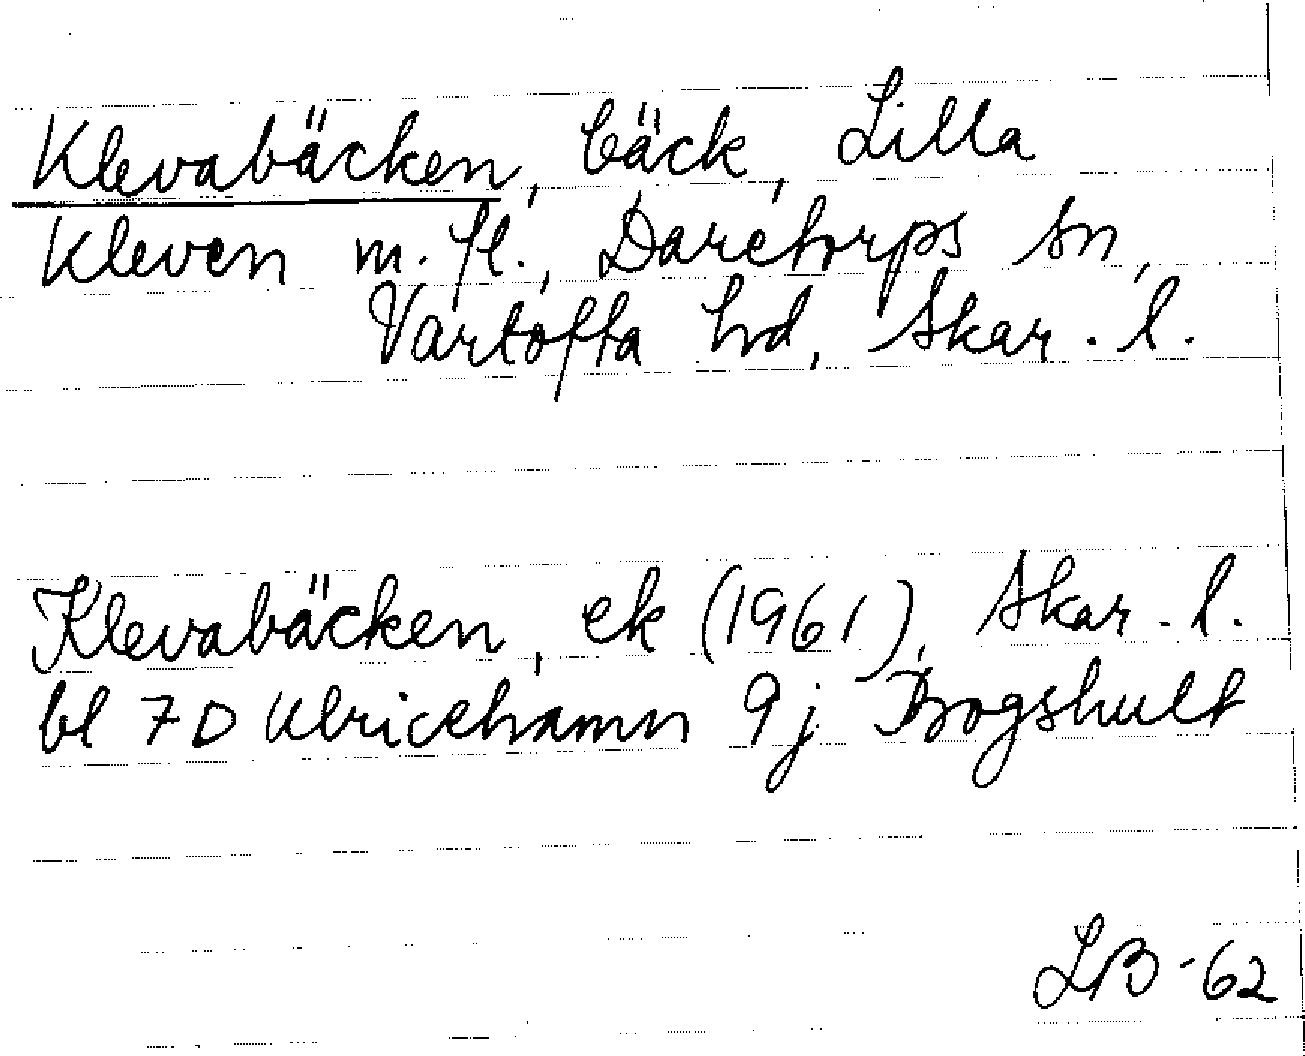 Klevabäcken, bäck, Lilla
Kleven m.fl., Daretorps sn,
Vartofta hd, Skar. l.
Klevabäcken, ek (1961), Skar. l.
bl 7D Ulricehamn 9j Brogshult
LB-62